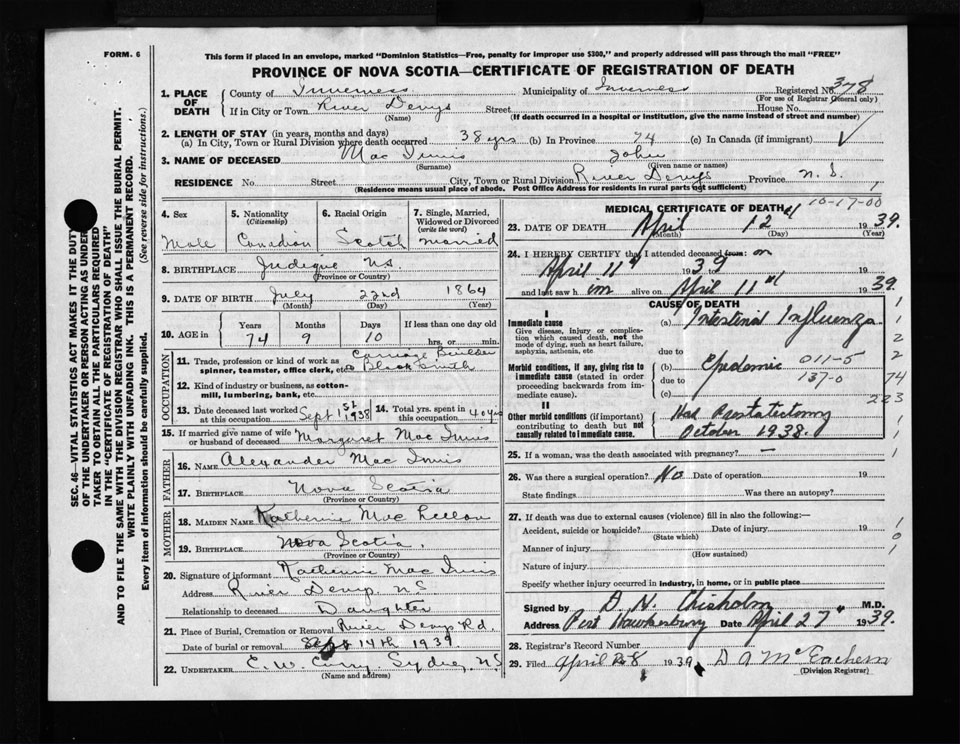 FORM. 6
This form if placed in an envelope, marked "Dominion Statistics—Free, penalty for improper use $300," and properly addressed will pass through the mail "FREE"
PROVINCE OF NOVA SCOTIA—CERTIFICATE OF REGISTRATION OF DEATH
1. PLACE OF DEATH County of Inverness Municipality of Inverness Registered No. 378
(For use of Registrar General only)
If in City or Town River Denys Street House No.
(Name) (If death occurred in a hospital or institution, give the name instead of street and number)
2. LENGTH OF STAY (in years, months and days)
(a) In City, Town or Rural Division where death occurred 38 yrs (b) In Province 74 (c) In Canada (if immigrant)
3. NAME OF DECEASED Mac Innis John
(Surname) (Given name or names)
RESIDENCE No. Street City, Town or Rural Division River Denys Province N. S.
(Residence means usual place of abode. Post Office Address for residents in rural parts not sufficient)
4. Sex 5. Nationality 6. Racial Origin 7. Single, Married, Widowed or Divorced
(Citizenship) (write the word)
Male Canadian Scotch Married
8. BIRTHPLACE Judique N.S.
(Province or Country)
9. DATE OF BIRTH July 22nd 1864
(Month) (Day) (Year)
10. AGE in Years Months Days If less than one day old
74 9 10 hrs. or min.
OCCUPATION
11. Trade, profession or kind of work as Carriage Builder
spinner, teamster, office clerk, etc. Black Smith
12. Kind of industry or business, as cotton-mill, lumbering, bank, etc.
13. Date deceased last worked at this occupation Sept 1st 1938 14. Total yrs. spent in this occupation 40 yrs
15. If married give name of wife or husband of deceased Margaret Mac Innis
FATHER
16. NAME Alexander Mac Innis
17. BIRTHPLACE Nova Scotia
(Province or Country)
MOTHER
18. MAIDEN NAME Katherine Mac Lellan
19. BIRTHPLACE Nova Scotia.
(Province or Country)
20. Signature of informant Katherine Mac Innis
Address River Denys N.S.
Relationship to deceased Daughter
21. Place of Burial, Cremation or Removal River Denys Rd.
Date of burial or removal 14th 1939
22. UNDERTAKER E. W. Curry. N.S
(Name and address)
MEDICAL CERTIFICATE OF DEATH 10-17-00 1
23. DATE OF DEATH April 12 1939.
(Month) (Day) (Year)
24. I HEREBY CERTIFY that I attended deceased from: on
April 11th 1939 to 19
and last saw h im alive on April 11th 1939.
CAUSE OF DEATH
I
Immediate cause (a) Intestinal Influenza
Give disease, injury or complication which caused death, not the mode of dying, such as heart failure, asphyxia, asthenia, etc.
due to
Morbid conditions, if any, giving rise to immediate cause (stated in order proceeding backwards from immediate cause). (b) Epedomic 011-5
due to 137-0
(c)
II
Other morbid conditions (if important) contributing to death but not causally related to immediate cause. Had Prostatectomy
October 1938.
1
1
2
2
74
223
1
1
25. If a woman, was the death associated with pregnancy? —
26. Was there a surgical operation? No Date of operation 19
State findings Was there an autopsy?
27. If death was due to external causes (violence) fill in also the following:—
Accident, suicide or homicide? Date of injury 19
(State which)
Manner of injury
(How sustained)
Nature of injury
Specify whether injury occurred in industry, in home, or in public place
1
0
1
Signed by D. N. Chisholm M.D.
Address Port Hawkesbury Date April 27 1939.
28. Registrar's Record Number
29. Filed April 28 1939 D A McEachern
(Division Registrar)
SEC. 46—VITAL STATISTICS ACT MAKES IT THE DUTY
OF THE UNDERTAKER OR PERSON ACTING AS UNDER-
TAKER TO OBTAIN ALL THE PARTICULARS REQUIRED
IN THE "CERTIFICATE OF REGISTRATION OF DEATH"
AND TO FILE THE SAME WITH THE DIVISION REGISTRAR WHO SHALL ISSUE THE BURIAL PERMIT.
WRITE PLAINLY WITH UNFADING INK. THIS IS A PERMANENT RECORD.
Every item of information should be carefully supplied. (See reverse side for instructions.)